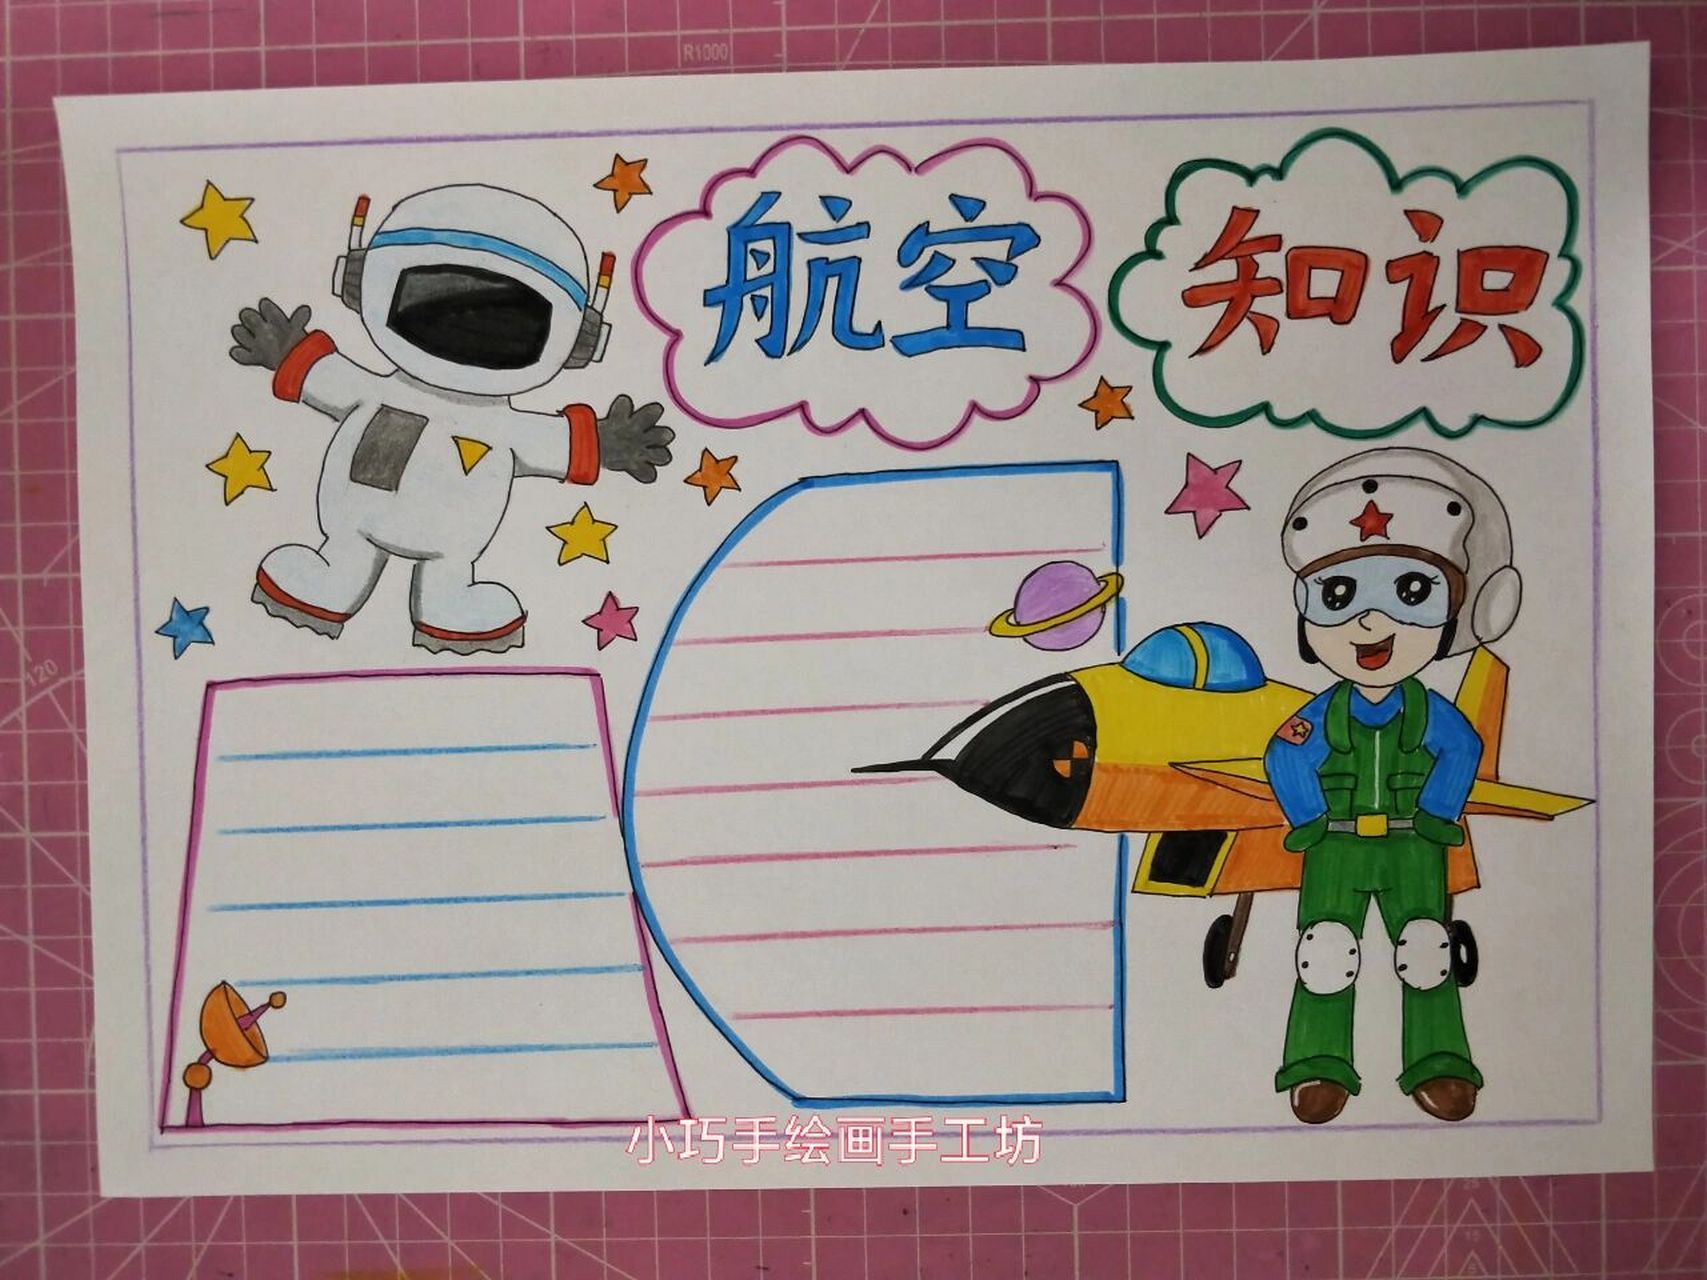 R1000
航空 知识
120
小巧手绘画手工坊